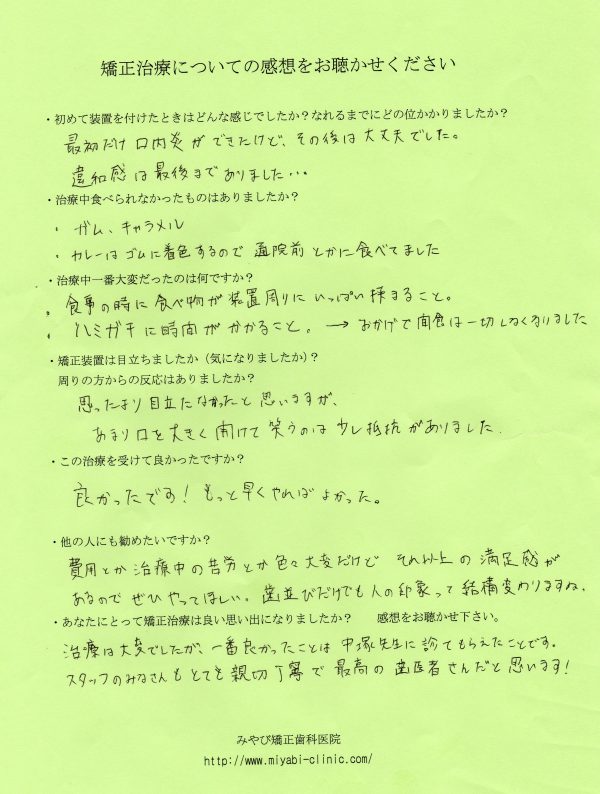 矯正治療についての感想をお聴かせください
・初めて装置を付けたときはどんな感じでしたか？なれるまでにどの位かかりましたか？
最初だけ口内炎ができたけど、その後は大丈夫でした。
違和感は最後までありました…。
・治療中食べられなかったものはありましたか？
・ガム、キャラメル
・カレーはゴムに着色するので通院前とかに食べてました
・治療中一番大変だったのは何ですか？
・食事の時に食べ物が装置周りにいっぱい挟まること。
・ハミガキに時間がかかること。→おかげで間食は一切しなくなりました
・矯正装置は目立ちましたか（気になりましたか）？
周りの方からの反応はありましたか？
思ったより目立たなかったと思いますが、
あまり口を大きく開けて笑うのは少し抵抗がありました.
・この治療を受けて良かったですか？
良かったです！もっと早くやればよかった。
・他の人にも勧めたいですか？
費用とか治療中の苦労とか色々大変だけど それ以上の満足感が
あるのでぜひやってほしい。歯並びだけでも人の印象って結構変わりますね。
・あなたにとって矯正治療は良い思い出になりましたか？　感想をお聴かせ下さい。
治療は大変でしたが、一番良かったことは中塚先生に診てもらえたことです。
スタッフのみなさんもとても親切丁寧で最高の歯医者さんだと思います！
みやび矯正歯科医院
http://www.miyabi-clinic.com/